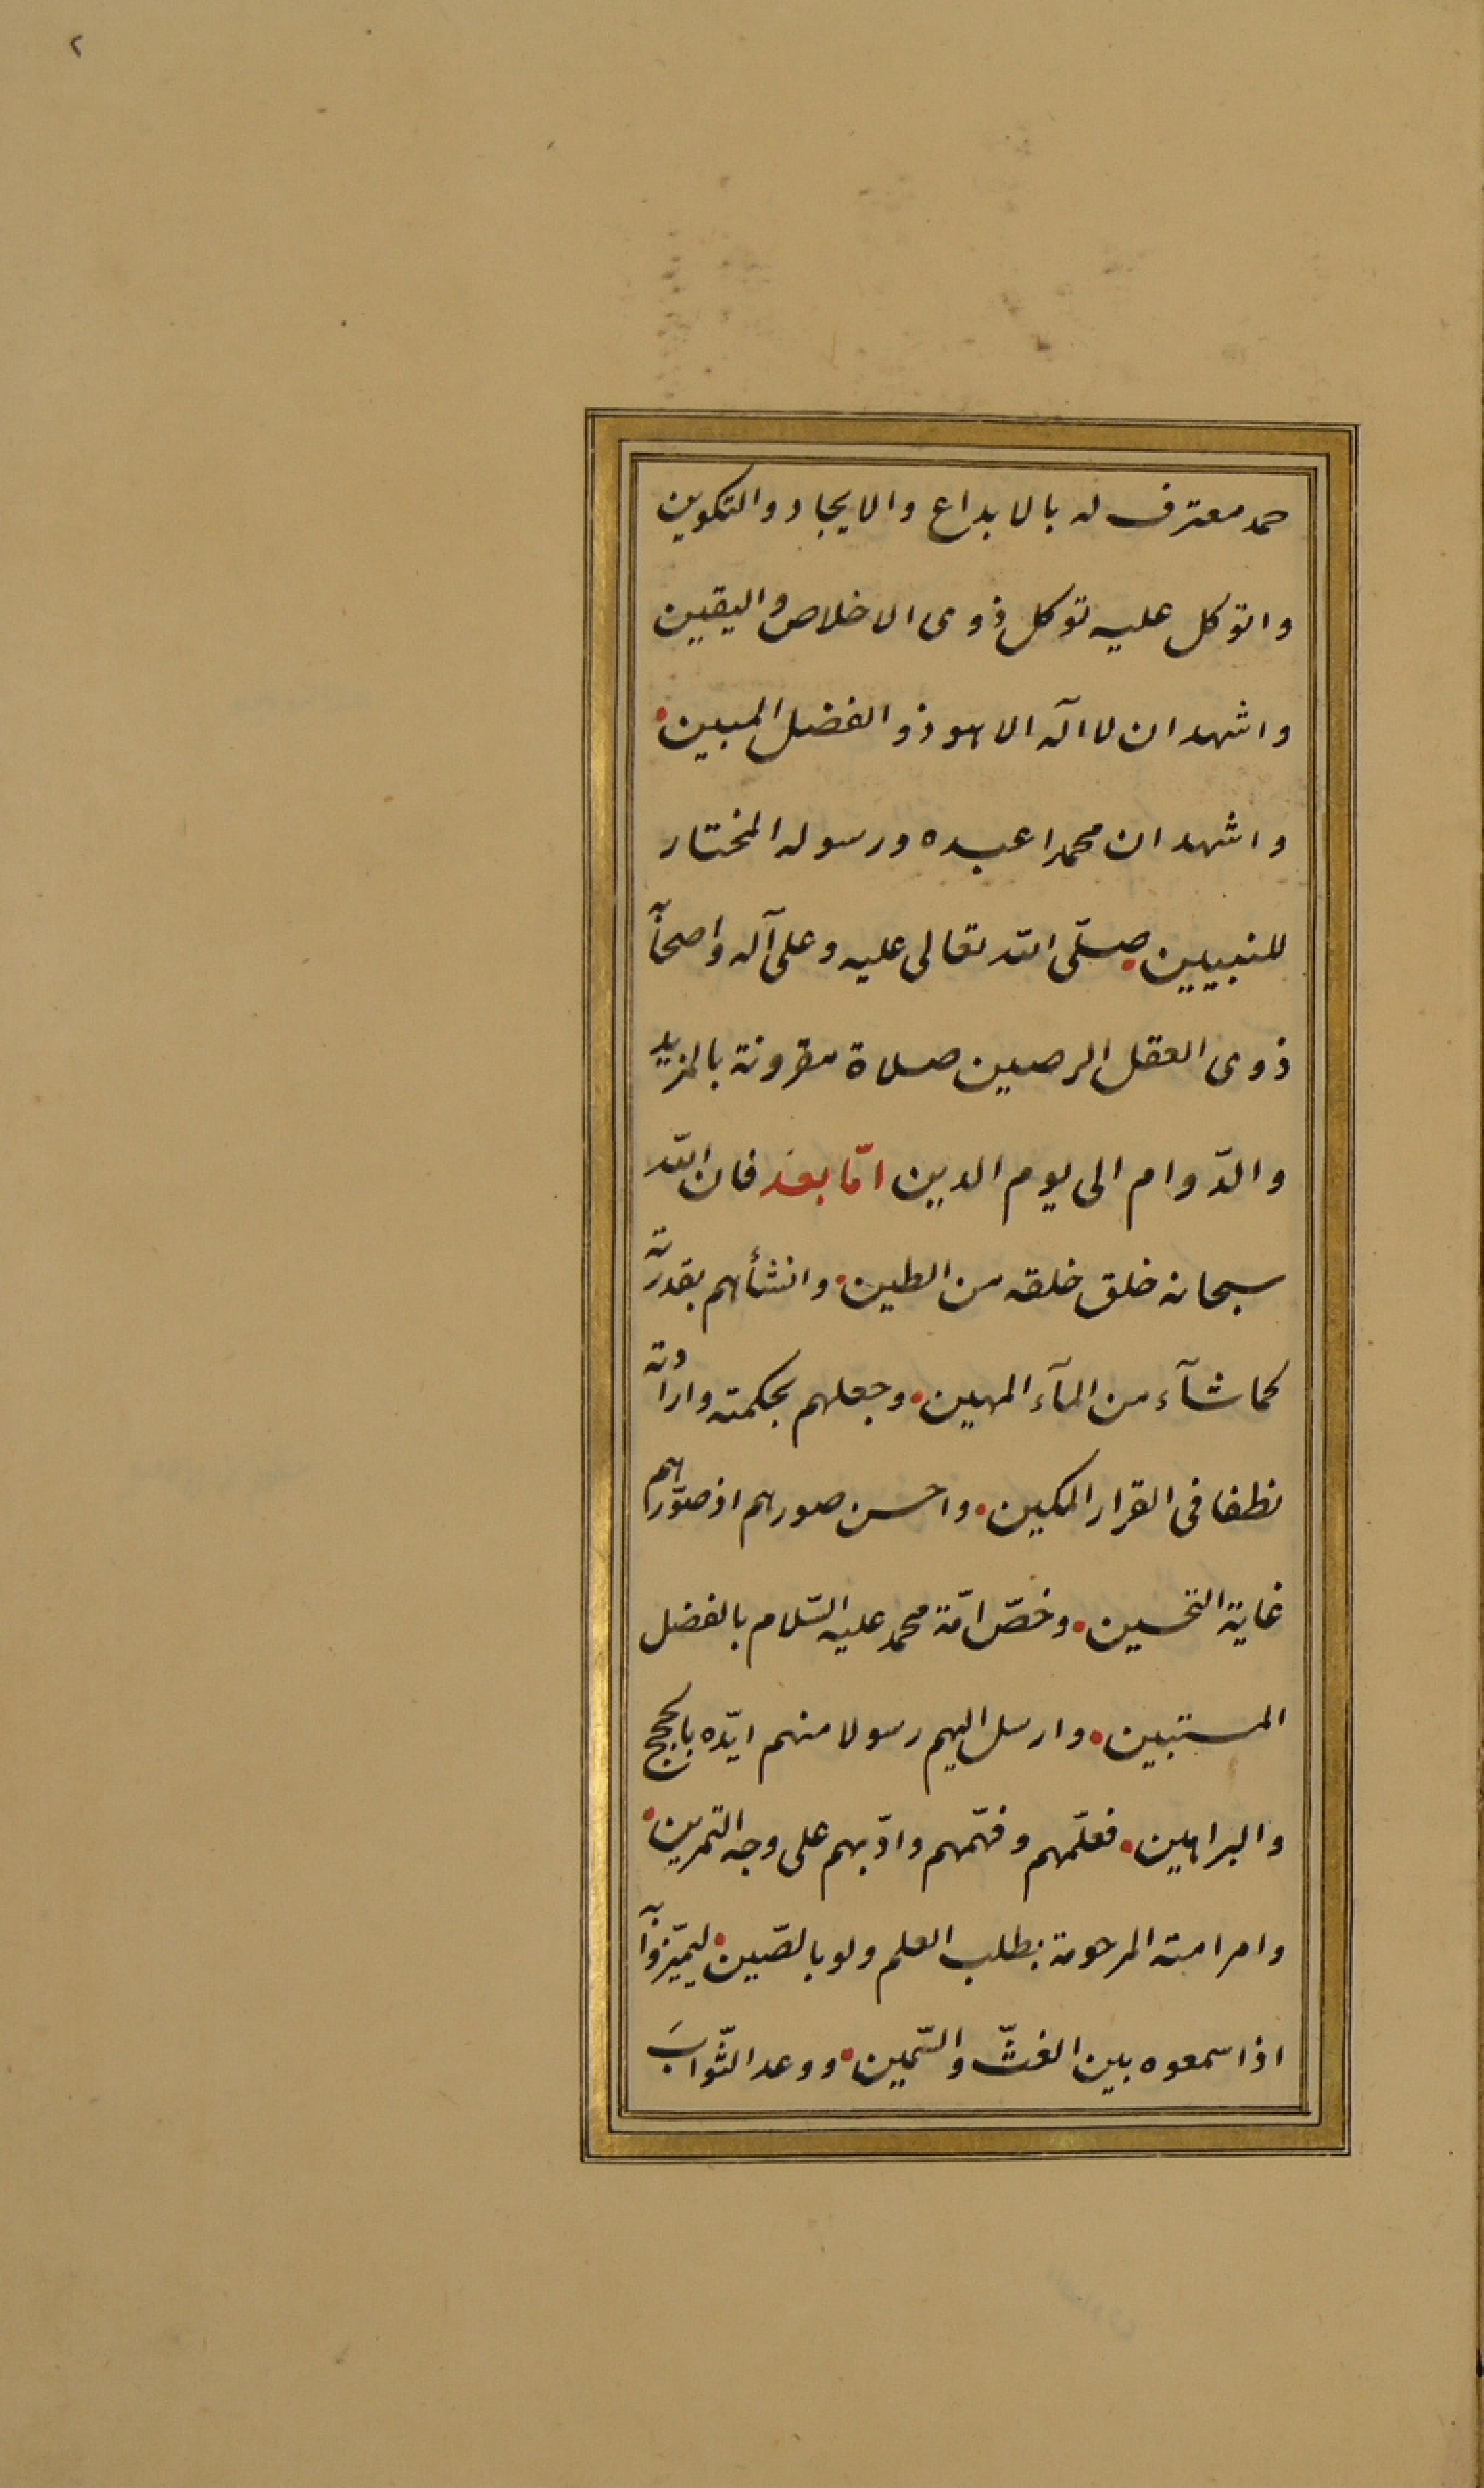 ٢
حمد معترف له بالابداع والايجاد والتكوين
واتوكل عليه توكل ذوى الاخلاص واليقين
واشهد ان لا اله الا هو ذو الفضل المبين
واشهد ان محمدا عبده ورسوله المختار
للنبيين صلّى الله تعالى عليه وعلى آله واصحابه
ذوى العقل الرصين صلاة مقرونة بالمزيد
والدّوام الى يوم الدين امّا بعد فان الله
سبحانه خلق خلقه من الطين وانشأهم بقدرته
كما شآء من المآء المهين وجعلهم بحكمته وارادته
نطفا فى القرار المكين واحسن صورهم اذ صوّرهم
غاية التحسين وخصّ امّة محمد عليه السّلام بالفضل
المستبين وارسل اليهم رسولا منهم ايّده بالحجج
والبراهين فعلّمهم وفهّمهم وادّبهم على وجه التمرين
وامر امته المرحومة بطلب العلم ولو بالصّين ليميّزوا به
اذا سمعوه بين الغثّ والسّمين ووعد الثّوابَ